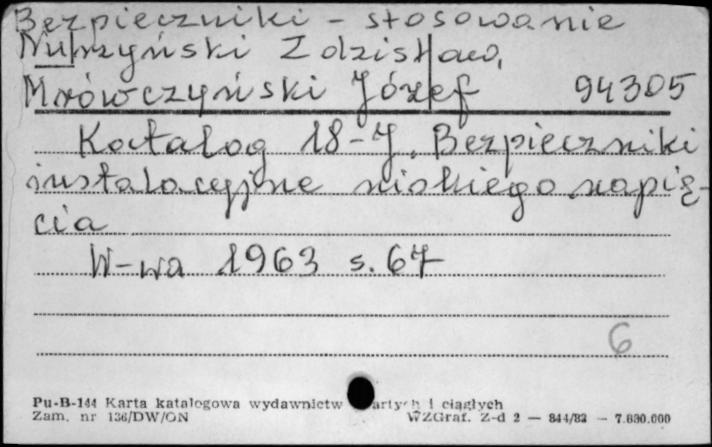 Bezpieczniki - stosowanie
Nurzyński Zdzisław,
Mrówczyński Józef 94305
Katalog 18-J. Bezpieczniki
instalacyjne niskiego napię-
cia
W-wa 1963 s. 67
6
Pu-B-144 Karta katalogowa wydawnictw i ciągłych
Zam. nr 136/DW/ON WZGraf. Z-d 2 — 844/83 — 7.630.000